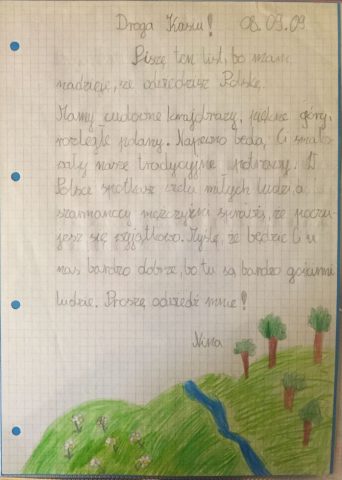 Droga Kasiu! 08.09.09
Piszę ten list, bo mam
nadzieję, że odwiedzisz Polskę.
Mamy cudowne krajobrazy, piękne góry,
rozległe polany. Napewno będą Ci smako
wały nasze tradycyjne potrawy. W
Polsce spotkasz wielu miłych ludzi, a
szarmanccy mężczyźni sprawią, że poczu
jesz się wyjątkowo. Myślę, że będzie Ci u
nas bardzo dobrze, bo tu są bardzo gościnni
ludzie. Proszę odwiedź mnie!
Nina